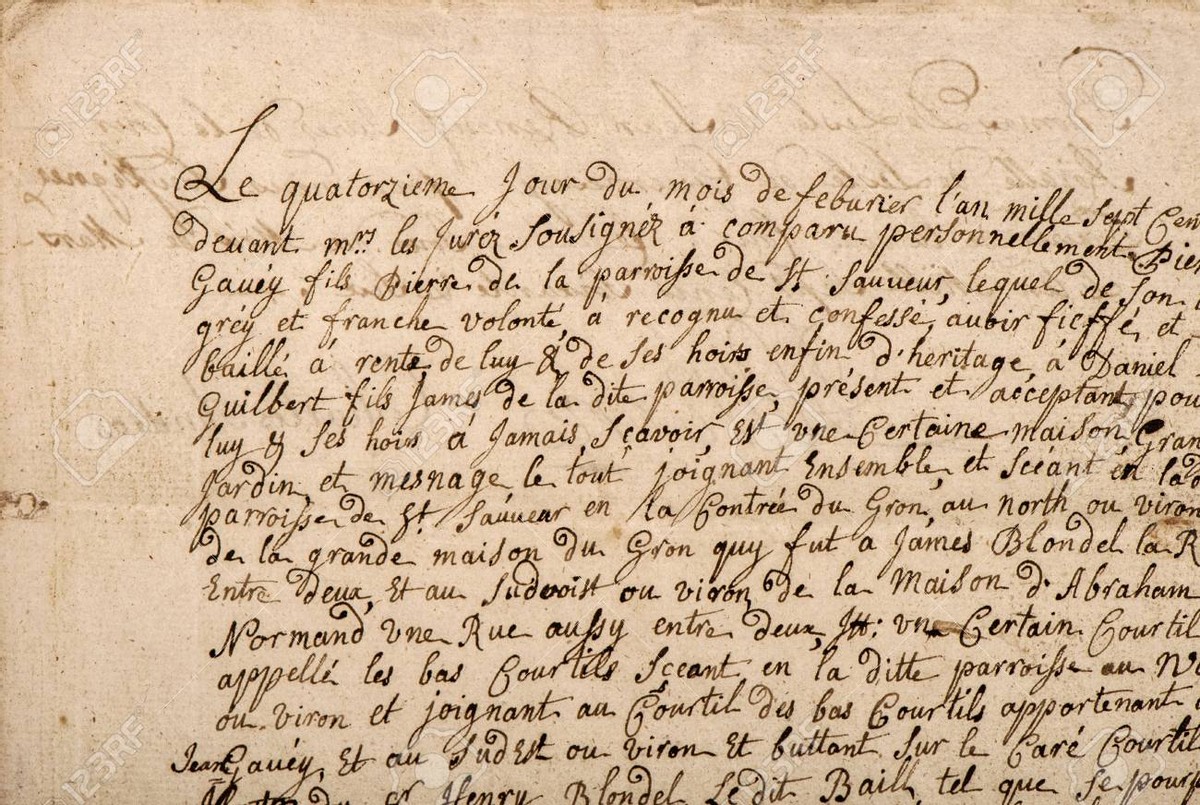 Le quatorzieme Jour du mois de feburier l'an mille sept Cen
deuant mrs les Juréz Sousignéz à comparu personnellement Pier
Gauéy fils Pierre de la parroisse de St Sauveur, lequel de son
gréy et franche volonté, à recognu et confessé, auoir fieffé et
baillé à rente, de luy & de ses hoirs enfin d'heritage, à Daniel
Guilbert fils James, de la dite parroisse, présent et acceptant pou
luy & ses hoirs à Jamais, sçavoir, Est vne Certaine maison Gran
Jardin, et mesnage le tout joignant Ensemble, et scéant en lad
parroisse de St Sauveur en la Contrée du Gron, au north ou viron
de la grande maison du Gron quy fut a James Blondel la R
Entre deux, Et au Sudvoist ou viron, de la Maison d'Abraham
Normand vne Rue aussy entre deux, It: vn Certain Courtil
appellé les bas Courtils Sceant en la ditte parroisse au N
ou viron et joignant au Courtil des bas Courtils appartenant
Jean Gauéy, Et au Sud Est ou viron Et buttant sur le Caré Courtil
du Sr Henry Blondel Ledit Baill, tel que se pourp